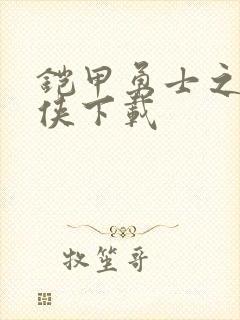 铠甲勇士之
侠下载
牧笙哥